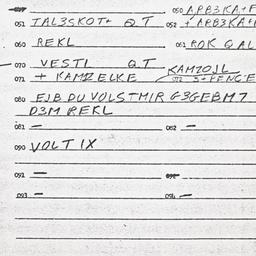 050 APB3KA+F
051 TAL3SKOT+ QT 052 + APB3KA+
060 REKL 061 ROK QAL
070 VESTI QT KAMZOJL
071 + KAMZELKE 072 S+FENCE
080 EJB DU VOLSTMIR G3GEBM7
D3M REKL
081 — 082 —
090 VOLT IX
092 —
093 — 094 —